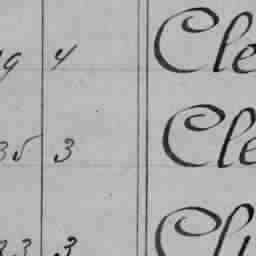 9 4 Cle
35 3 Cle
33 3 Cl